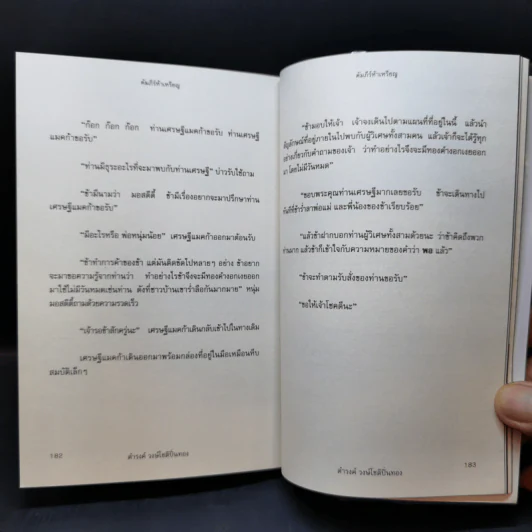 คัมภีร์ห้าเหรียญ
"ก๊อก ก๊อก ก๊อก ท่านเศรษฐีแมคก้าขอรับ ท่านเศรษฐี
แมคก้าขอรับ"
"ท่านมีธุระอะไรที่จะมาพบกับท่านเศรษฐี" บ่าวรับใช้ถาม
"ข้ามีนามว่า มอสดีตี้ ข้ามีเรื่องอยากจะมาปรึกษาท่าน
เศรษฐีแมคก้าขอรับ"
"มีอะไรหรือ พ่อหนุ่มน้อย" เศรษฐีแมคก้าออกมาต้อนรับ
"ข้าทำการค้าของข้า แต่มันติดขัดไปหลายๆ อย่าง ข้าอยาก
จะมาขอความรู้จากท่านว่า ทำอย่างไรข้าจึงจะมีทองคำงอกเงยออก
มาใช้ไม่มีวันหมดเช่นท่าน ดังที่ชาวบ้านเขาร่ำลือกันมากมาย" หนุ่ม
มอสดีตี้ถามด้วยความรวดเร็ว
"เจ้ารอข้าสักครู่นะ" เศรษฐีแมคก้าเดินกลับเข้าไปในทางเดิม
เศรษฐีแมคก้าเดินออกมาพร้อมกล่องที่อยู่ในมือเหมือนหีบ
สมบัติเล็กๆ
182
ดำรงค์ วงษ์โชติปิ่นทอง
คัมภีร์ห้าเหรียญ
"ข้ามอบให้เจ้า เจ้าจงเดินไปตามแผนที่ที่อยู่ในนี้ แล้วนำ
สัญลักษณ์ที่อยู่ภายในไปพบกับผู้วิเศษทั้งสามคน แล้วเจ้าก็จะได้รู้ทุก
อย่างเกี่ยวกับคำถามของเจ้า ว่าทำอย่างไรจึงจะมีทองคำงอกเงยออก
มา โดยไม่มีวันหมด"
"ขอบพระคุณท่านเศรษฐีมากเลยขอรับ ข้าจะเดินทางไป
ทันทีที่ข้าร่ำลาพ่อแม่ และพี่น้องของข้าเรียบร้อย"
"แล้วข้าฝากบอกท่านผู้วิเศษทั้งสามด้วยนะ ว่าข้าคิดถึงพวก
ท่านมาก แล้วข้าก็เข้าใจกับความหมายของคำว่า พอ แล้ว"
"ข้าจะทำตามรับสั่งของท่านขอรับ"
"ขอให้เจ้าโชคดีนะ"
ดำรงค์ วงษ์โชติปิ่นทอง
183